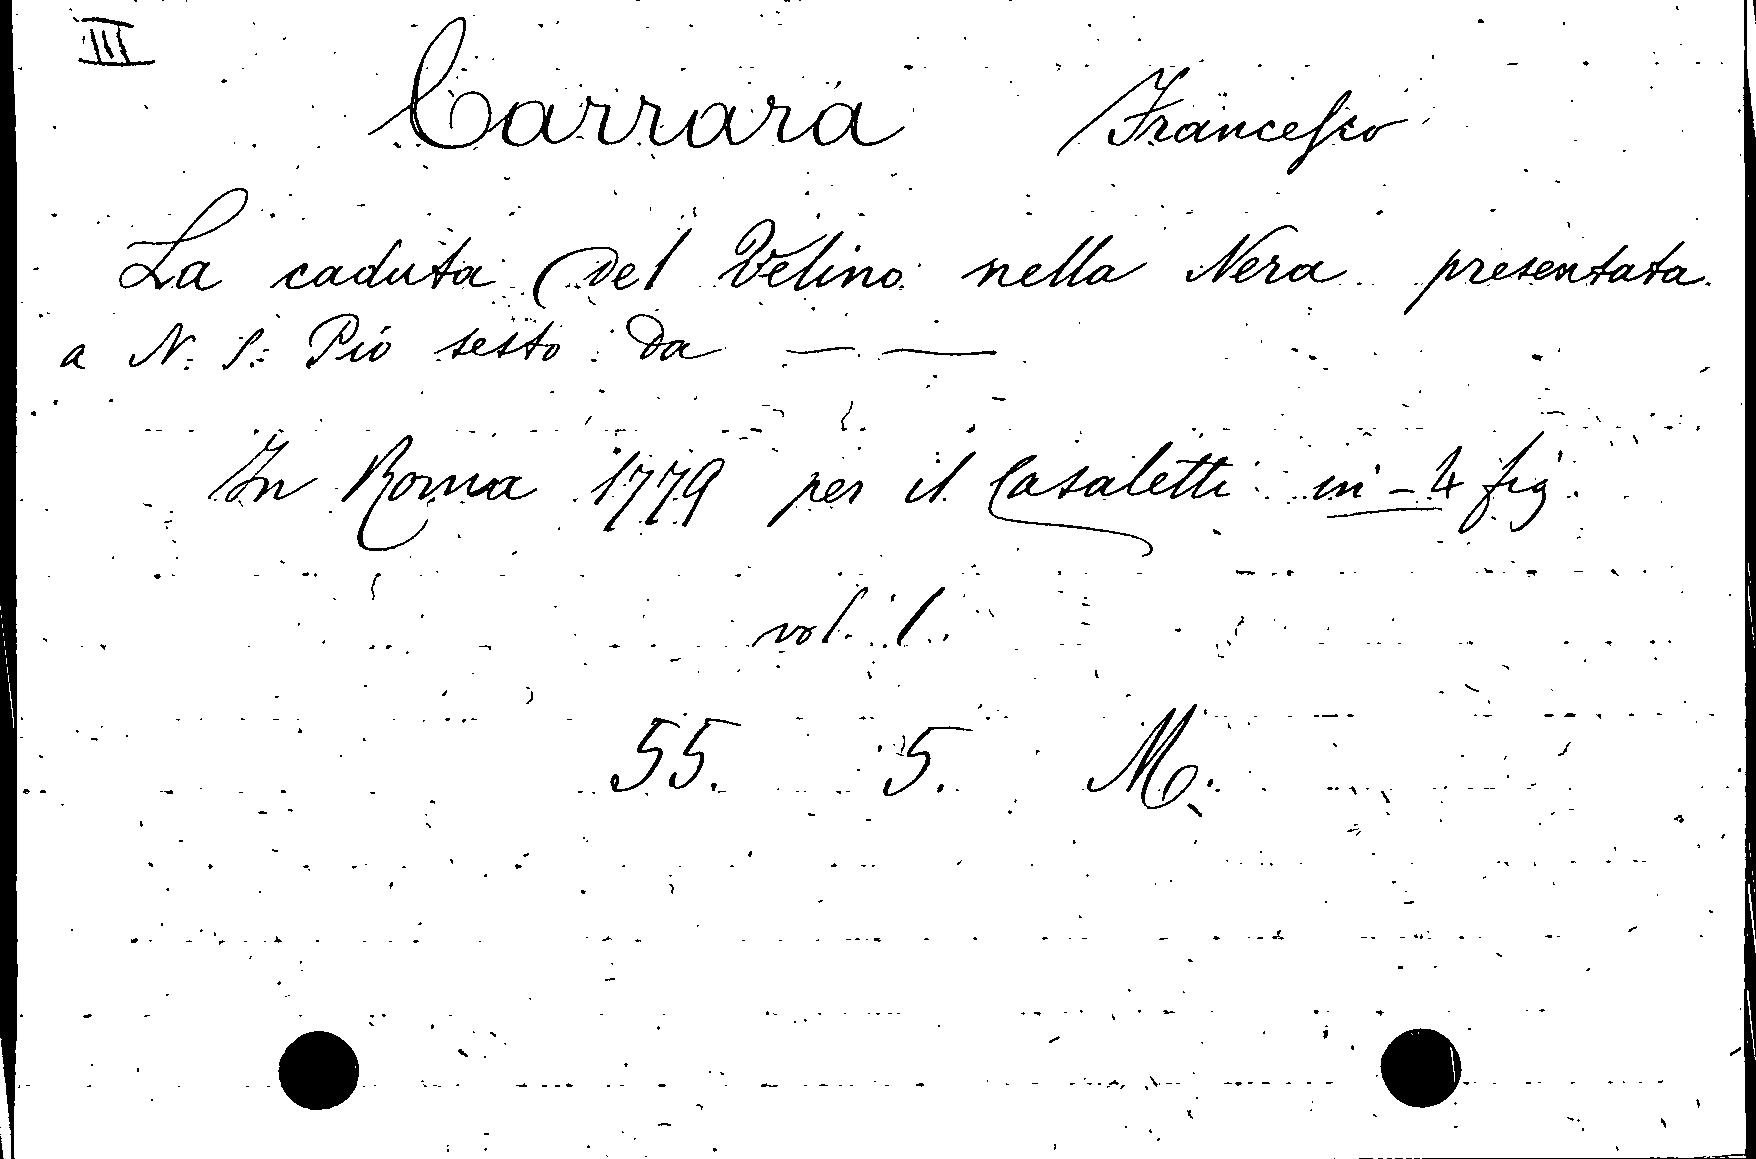 III
Carrara Francesco
La caduta del Velino nella Nera presentata
a N. S. Pio sesto da — —
In Roma 1779 per il Casaletti in-4 fig.
vol. 1.
55. 5. M.